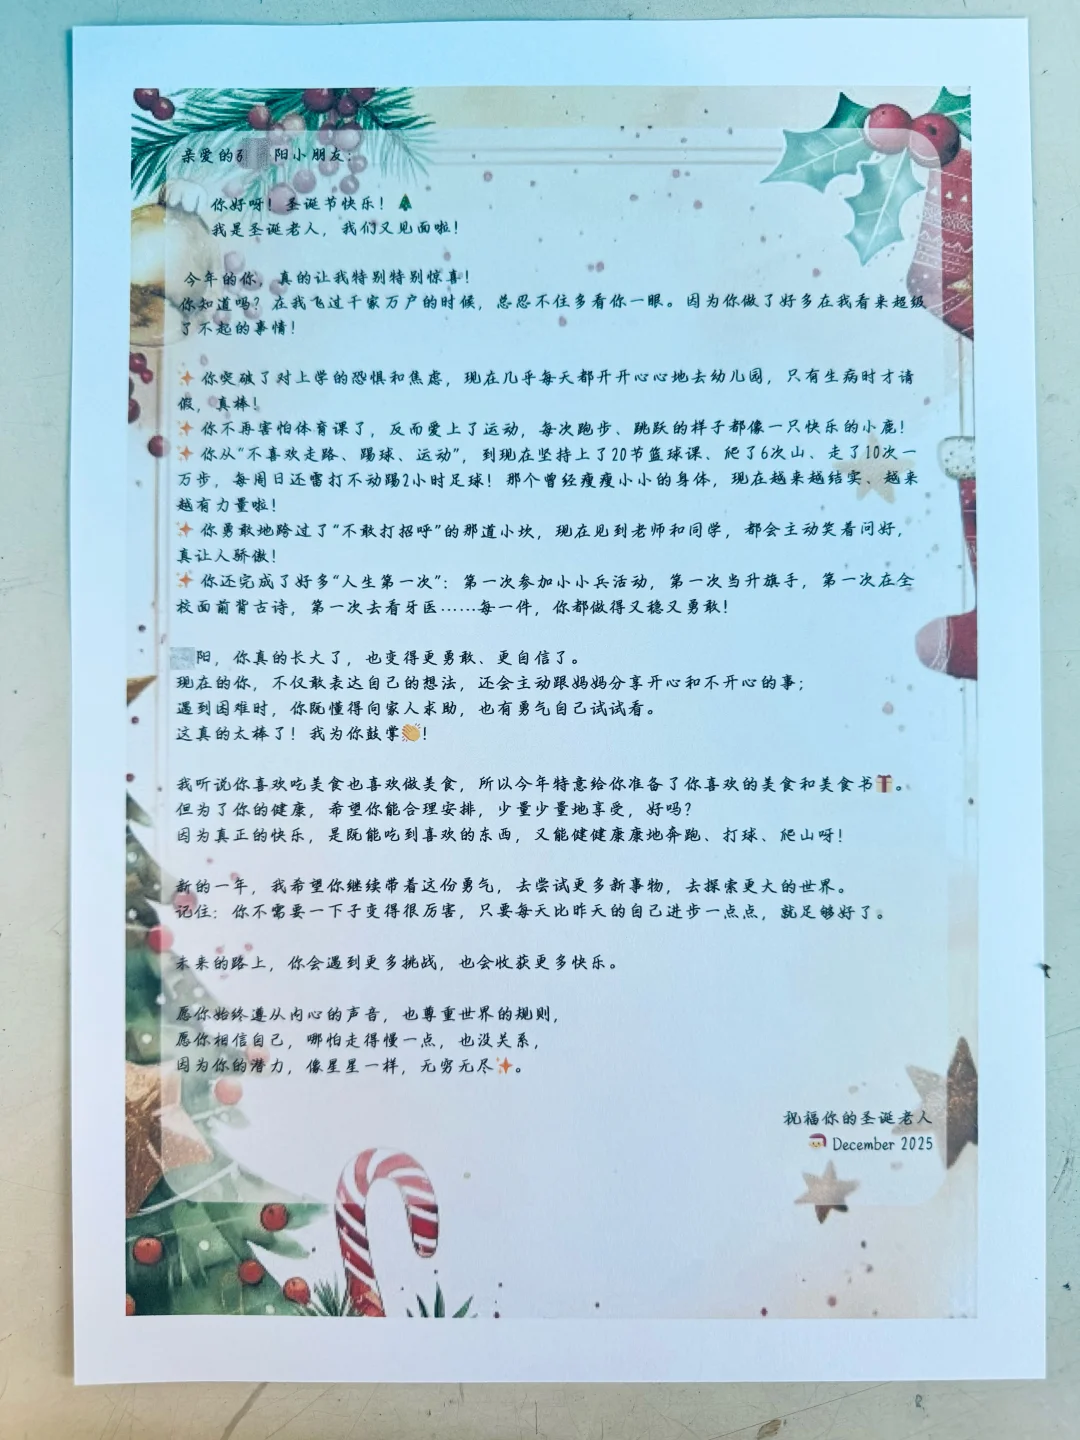 亲爱的 阳小朋友：
你好呀！圣诞节快乐！🎄
我是圣诞老人，我们又见面啦！
今年的你，真的让我特别特别惊喜！
你知道吗？在我飞过千家万户的时候，总忍不住多看你一眼。因为你做了好多在我看来超级
了不起的事情！
✨你突破了对上学的恐惧和焦虑，现在几乎每天都开开心心地去幼儿园，只有生病时才请
假，真棒！
✨你不再害怕体育课了，反而爱上了运动，每次跑步、跳跃的样子都像一只快乐的小鹿！
✨你从“不喜欢走路、踢球、运动”，到现在坚持上了20节篮球课、爬了6次山、走了10次一
万步，每周日还雷打不动踢2小时足球！那个曾经瘦瘦小小的身体，现在越来越结实、越来
越有力量啦！
✨你勇敢地跨过了“不敢打招呼”的那道小坎，现在见到老师和同学，都会主动笑着问好，
真让人骄傲！
✨你还完成了好多“人生第一次”：第一次参加小小兵活动，第一次当升旗手，第一次在全
校面前背古诗，第一次去看牙医……每一件，你都做得又稳又勇敢！
阳，你真的长大了，也变得更勇敢、更自信了。
现在的你，不仅敢表达自己的想法，还会主动跟妈妈分享开心和不开心的事；
遇到困难时，你既懂得向家人求助，也有勇气自己试试看。
这真的太棒了！我为你鼓掌👏！
我听说你喜欢吃美食也喜欢做美食，所以今年特意给你准备了你喜欢的美食和美食书🎁。
但为了你的健康，希望你能合理安排，少量少量地享受，好吗？
因为真正的快乐，是既能吃到喜欢的东西，又能健健康康地奔跑、打球、爬山呀！
新的一年，我希望你继续带着这份勇气，去尝试更多新事物，去探索更大的世界。
记住：你不需要一下子变得很厉害，只要每天比昨天的自己进步一点点，就足够好了。
未来的路上，你会遇到更多挑战，也会收获更多快乐。
愿你始终遵从内心的声音，也尊重世界的规则，
愿你相信自己，哪怕走得慢一点，也没关系，
因为你的潜力，像星星一样，无穷无尽✨。
祝福你的圣诞老人
🎅 December 2025